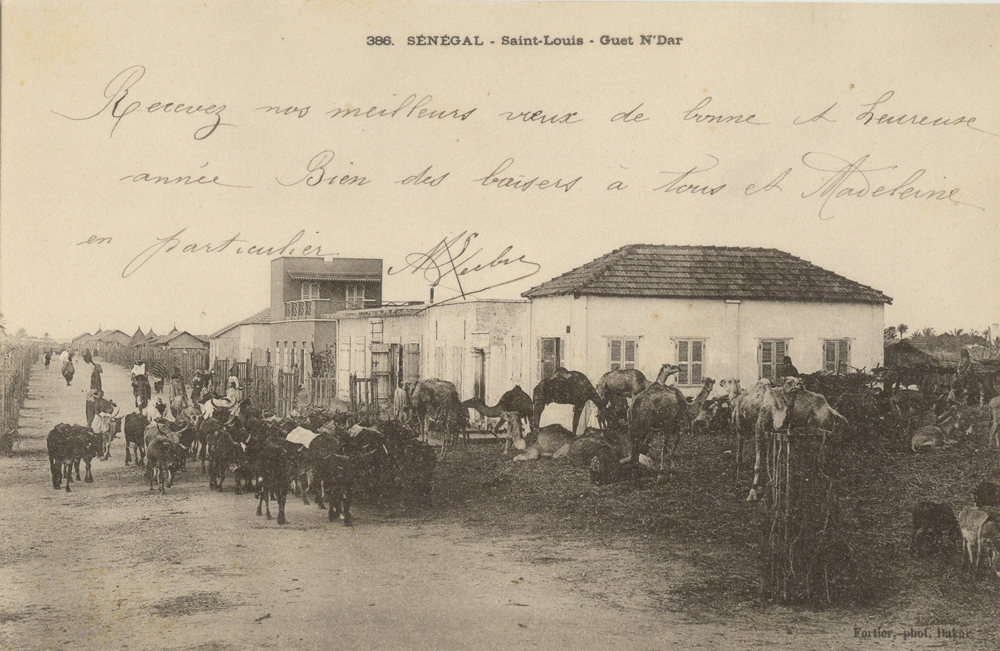 386. SÉNÉGAL - Saint-Louis - Guet N'Dar
Recevez nos meilleurs vœux de bonne et heureuse
année Bien des baisers à tous et Madeleine
en particulier
Fortier, phot. Dakar